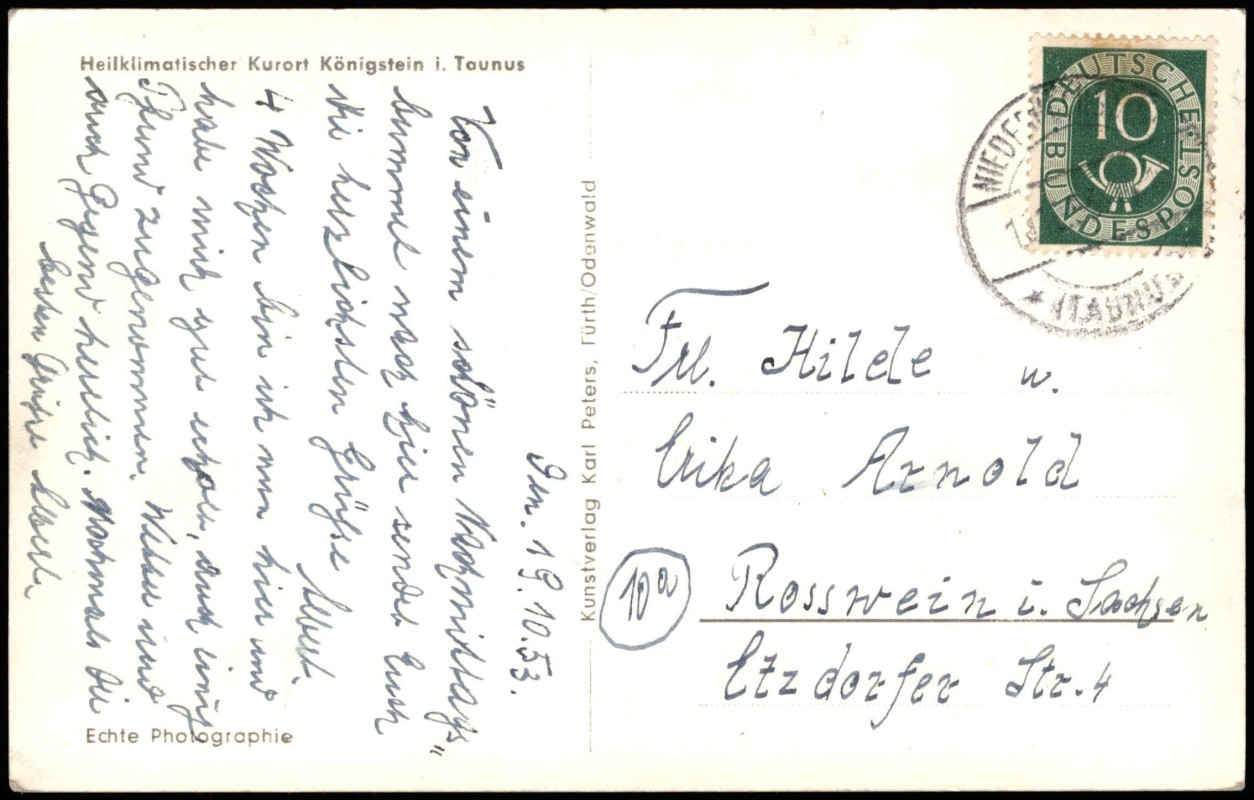 Heilklimatischer Kurort Königstein i. Taunus
Den. 19.10.53.
Von einem schönen Nachmittags
bummel nach hier sendet Euch
die herzlichsten Grüße Albert.
4 Wochen bin ich nun hier und
habe mich gut erholt, auch einige
Pfund zugenommen. Wetter und
auch Gegend herrlich. Nochmals die
besten Grüße Albert.
Echte Photographie
Kunstverlag Karl Peters, Fürth/Odenwald
DEUTSCHE BUNDESPOST
10
NIEDER
* (TAUNUS
Frl. Hilde u.
Erika Arnold
10a
Rosswein i. Sachsen
Etzdorfer Str. 4